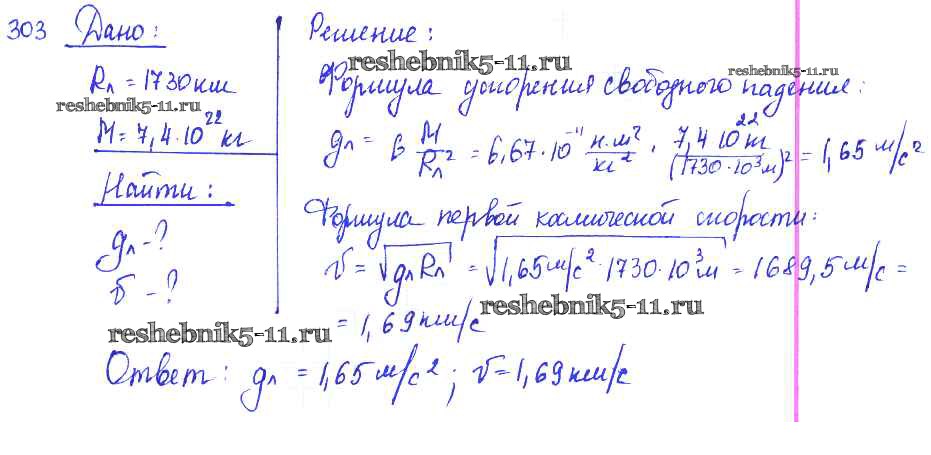 303 Дано:
Rл = 1730 км
reshebnik5-11.ru
M = 7,4·10²² кг
Найти:
gл - ?
v - ?
Решение:
reshebnik5-11.ru
reshebnik5-11.ru
Формула ускорения свободного падения:
gл = G M/Rл² = 6,67·10⁻¹¹ н·м²/кг² · 7,4 10²² кг/(1730·10³м)² = 1,65 м/с²
Формула первой космической скорости:
v = √gл Rл = √1,65 м/с² · 1730·10³ м = 1689,5 м/с =
reshebnik5-11.ru
= 1,69 км/с
reshebnik5-11.ru
Ответ: gл = 1,65 м/с²; v = 1,69 км/с